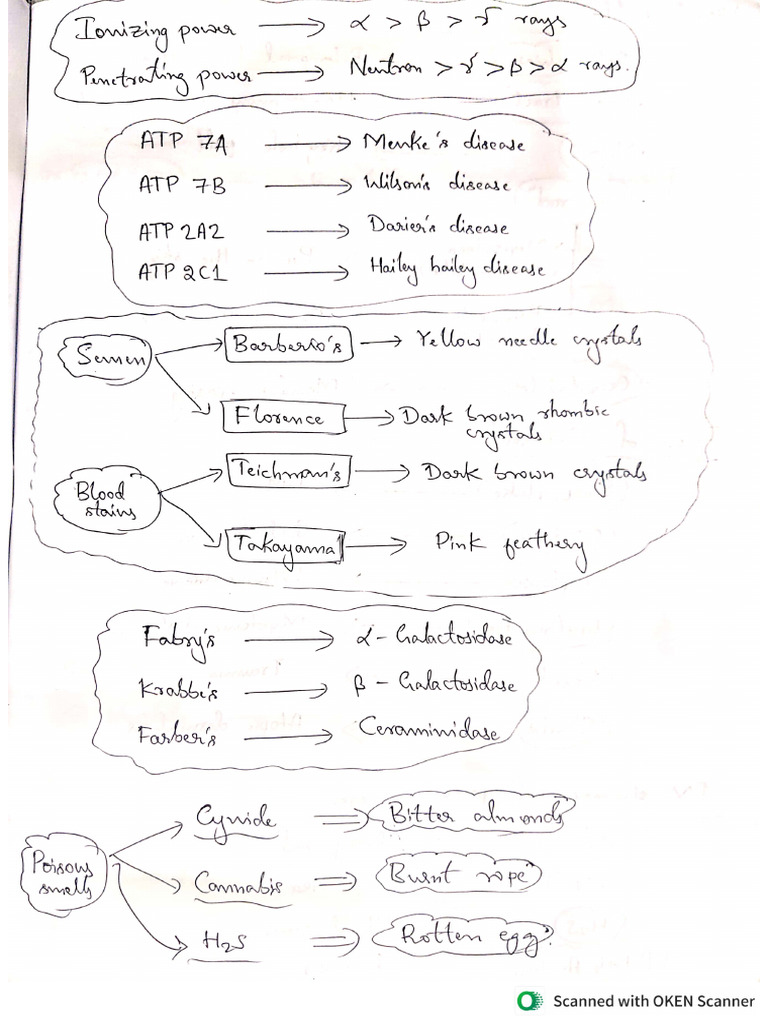 Ionizing power → α > β > γ rays
Penetrating power → Neutron > γ > β > α rays.
ATP 7A → Menke's disease
ATP 7B → Wilson's disease
ATP 2A2 → Darier's disease
ATP 2C1 → Hailey hailey disease
Semen
Barberio's → Yellow needle crystals
Florence → Dark brown rhombic
crystals
Blood
stains
Teichman's → Dark brown crystals
Takayama → Pink feathery
Fabry's → α - Galactosidase
Krabbe's → β - Galactosidase
Farber's → Ceraminidase
Poisons
smells
Cynide ⇒ Bitter almonds
Cannabis ⇒ Burnt rope
H2S ⇒ Rotten egg.
Scanned with OKEN Scanner